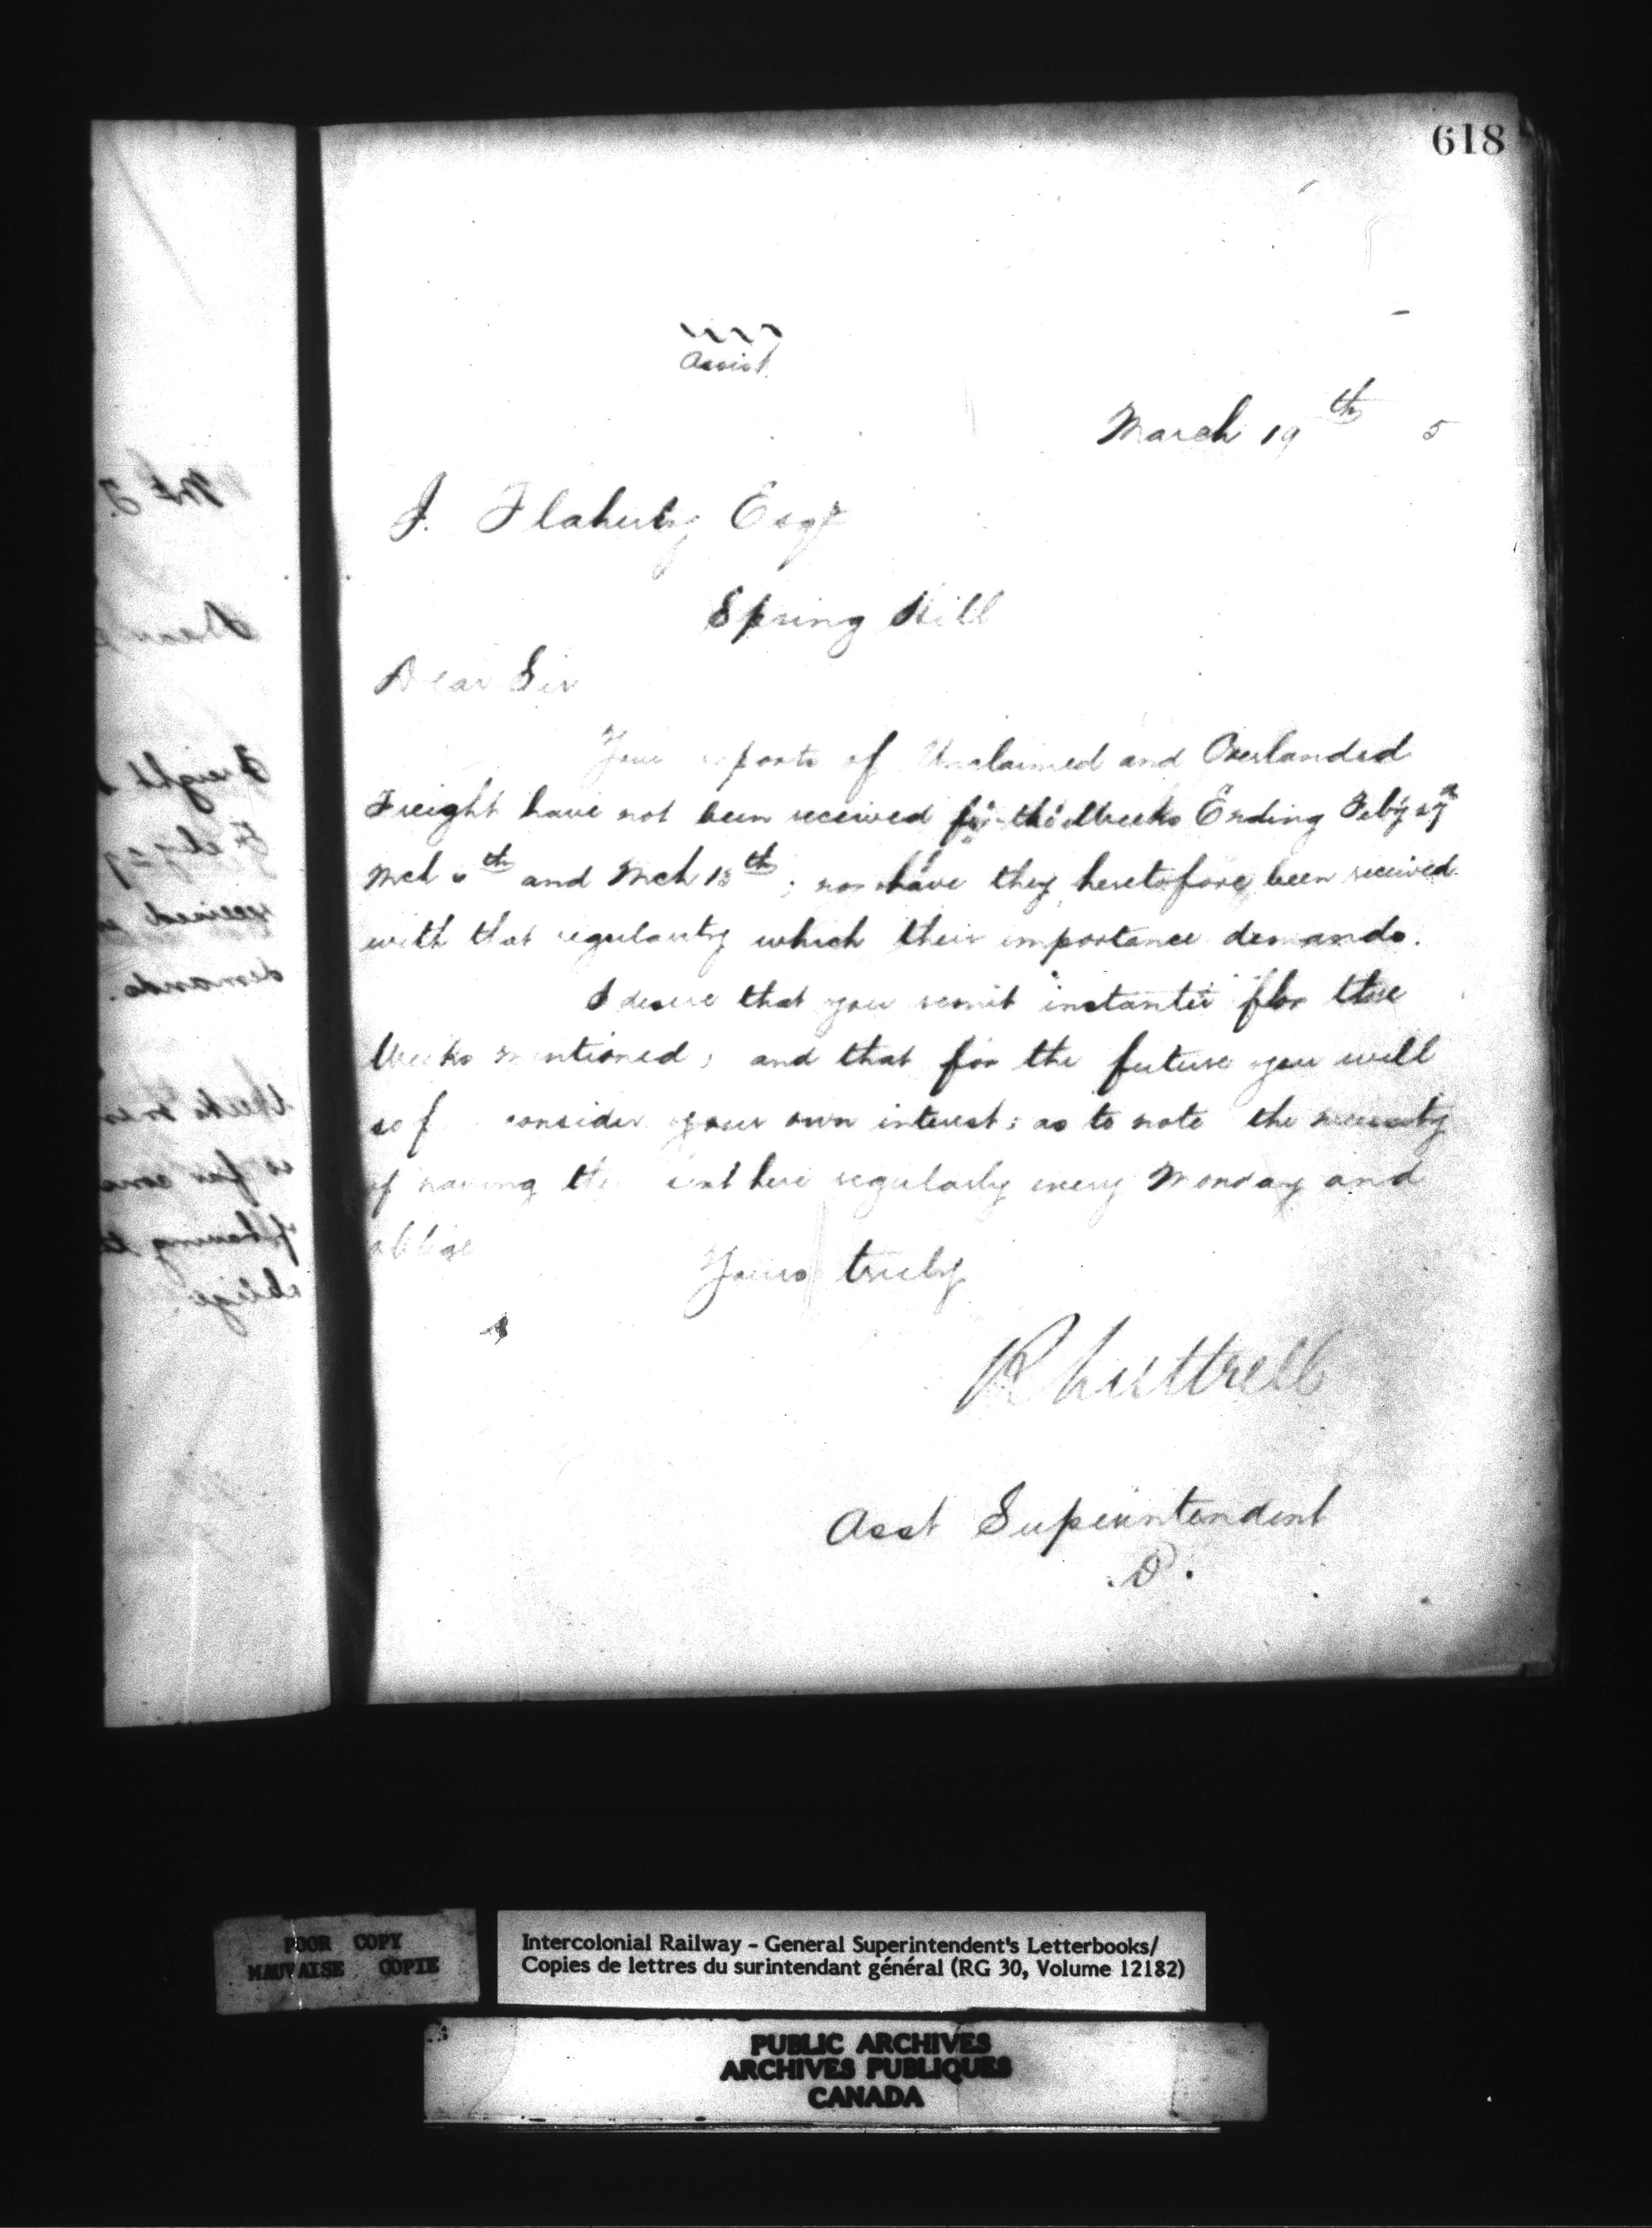 618
Assist
March 19th 5
J. Flaherty Esqr
Spring Hill
Dear Sir
Your reports of Unclaimed and Overlanded
Freight have not been received for the Weeks Ending Feby 27th
Mch 6th and Mch 13th; nor have they heretofore been received
with that regularity which their importance demands.
I desire that you remit instanter for the
Weeks mentioned; and that for the future you will
so f consider your own interest; as to note the necessity
of having the sent here regularly every Monday and
oblige
Yours truly
R Luttrell
Asst Superintendent
D.
Mr J.
Freight
Feby 27
received
demands.
Weeks men
so far cons
of having the
oblige
POOR COPY
MAUVAISE COPIE
Intercolonial Railway - General Superintendent's Letterbooks/
Copies de lettres du surintendant général (RG 30, Volume 12182)
PUBLIC ARCHIVES
ARCHIVES PUBLIQUES
CANADA